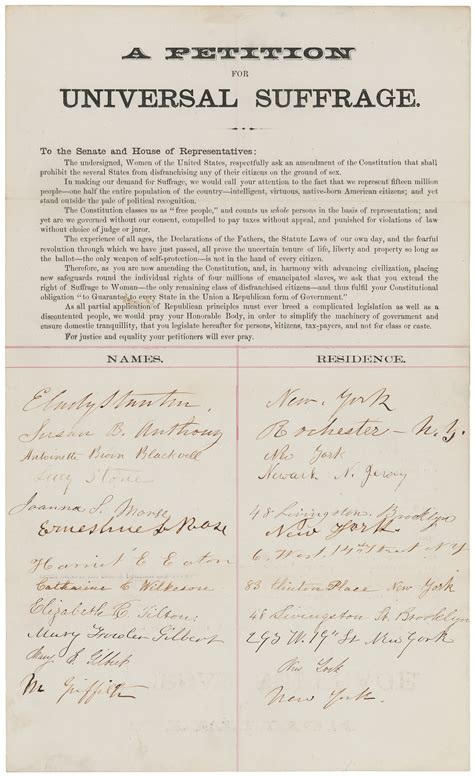 A PETITION
FOR
UNIVERSAL SUFFRAGE.
To the Senate and House of Representatives:
The undersigned, Women of the United States, respectfully ask an amendment of the Constitution that shall
prohibit the several States from disfranchising any of their citizens on the ground of sex.
In making our demand for Suffrage, we would call your attention to the fact that we represent fifteen million
people—one half the entire population of the country—intelligent, virtuous, native-born American citizens; and yet
stand outside the pale of political recognition.
The Constitution classes us as "free people," and counts us whole persons in the basis of representation; and
yet are we governed without our consent, compelled to pay taxes without appeal, and punished for violations of law
without choice of judge or juror.
The experience of all ages, the Declarations of the Fathers, the Statute Laws of our own day, and the fearful
revolution through which we have just passed, all prove the uncertain tenure of life, liberty and property so long as
the ballot—the only weapon of self-protection—is not in the hand of every citizen.
Therefore, as you are now amending the Constitution, and, in harmony with advancing civilization, placing
new safeguards round the individual rights of four millions of emancipated slaves, we ask that you extend the
right of Suffrage to Woman—the only remaining class of disfranchised citizens—and thus fulfil your Constitutional
obligation "to Guarantee to every State in the Union a Republican form of Government."
As all partial application of Republican principles must ever breed a complicated legislation as well as a
discontented people, we would pray your Honorable Body, in order to simplify the machinery of government and
ensure domestic tranquillity, that you legislate hereafter for persons, citizens, tax-payers, and not for class or caste.
For justice and equality your petitioners will ever pray.
NAMES. RESIDENCE.
E Cady Stanton. New York
Susan B. Anthony Rochester - N.Y.
Antoinette Brown Blackwell New York
Lucy Stone Newark N. Jersey
Joanna S. Morse 48 Livingston. Brooklyn
Ernestine L Rose New York
Harriet E Eaton 6. West. 14th Street N.Y
Catharine C Wilkeson 83 Clinton Place New York
Elizabeth R. Tilton. 48 Livingston St. Brooklyn
Mary Fowler Gilbert 293 W. 19th St New York
Mary E Gilbert New York
M Griffith New York.